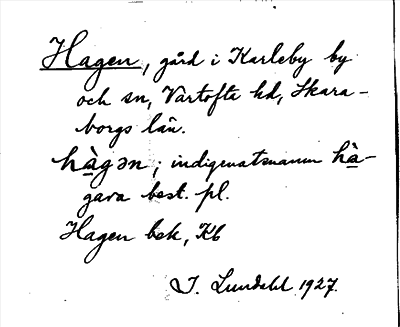 Hagen, gård i Karleby by
och sn, Vartofta hd, Skara-
borgs län.
hàgən; indigenatsnamn hà-
gara best. pl.
Hagen bek, Kb
J. Lundahl 1927.